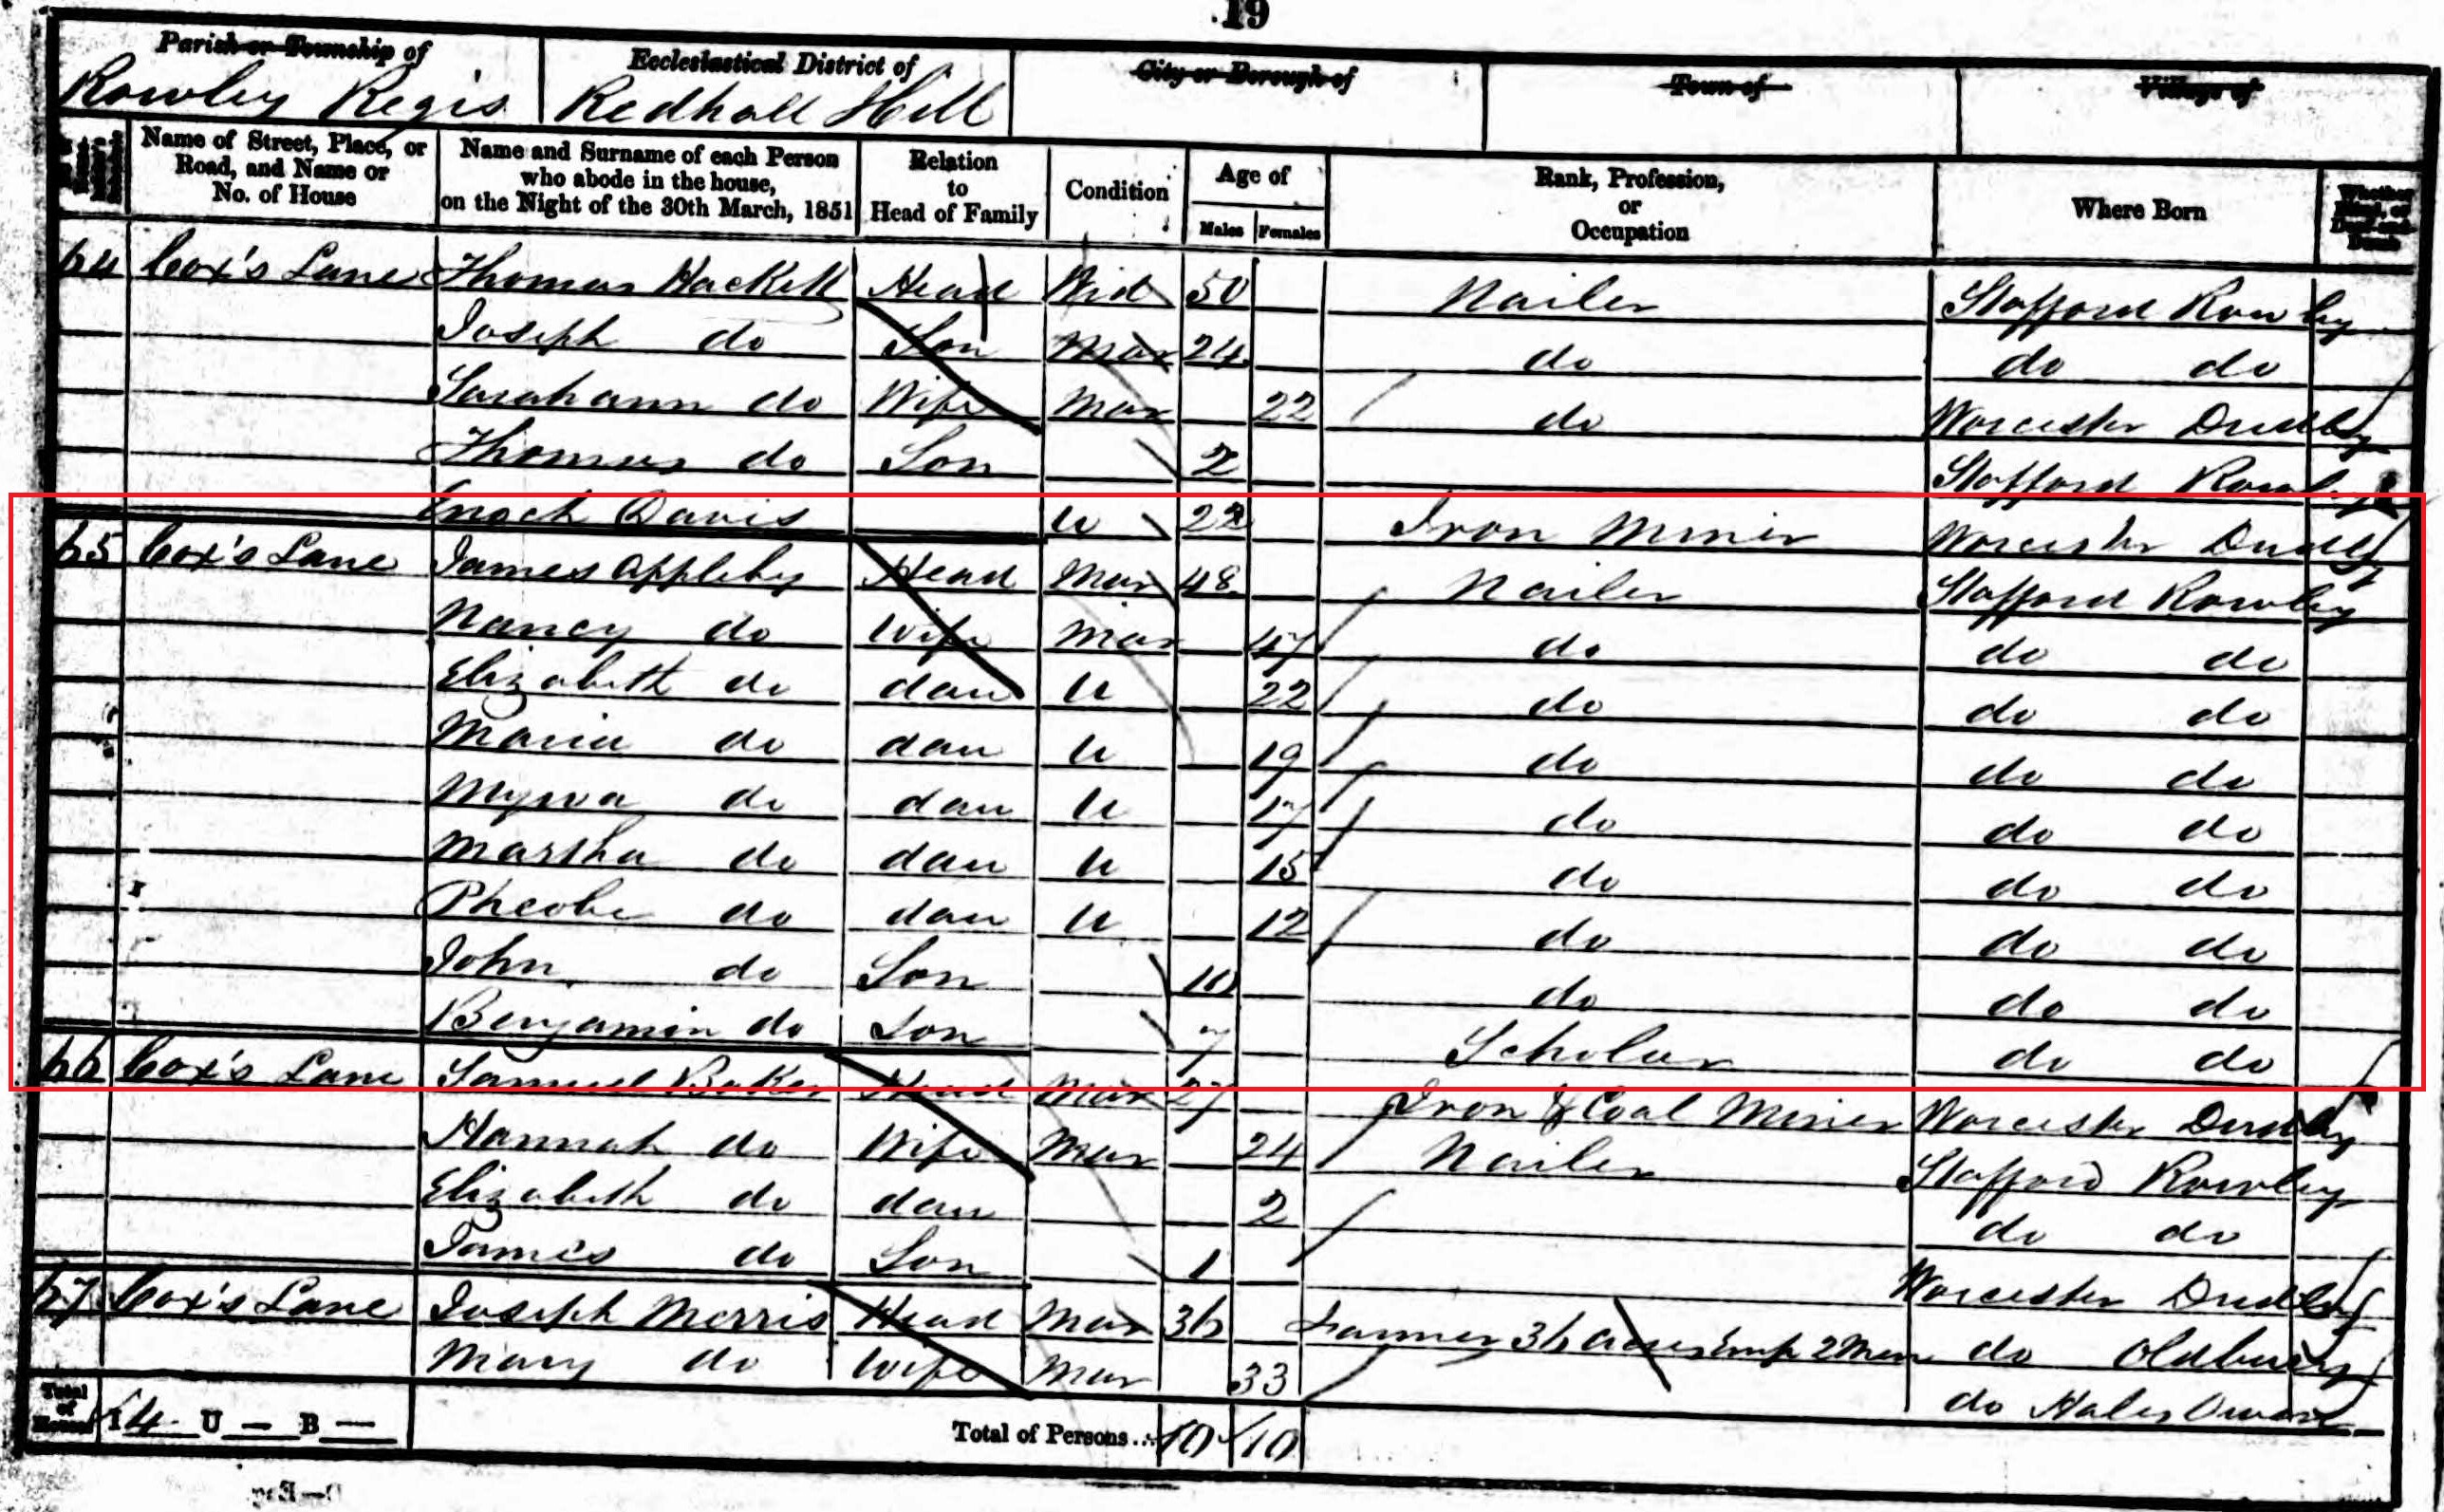 19
Parish or Township of
Rowley Regis
Ecclesiastical District of
Redhall Hill
City or Borough of
Town of
Village of
Name of Street, Place, or Road, and Name or No. of House
Name and Surname of each Person who abode in the house, on the Night of the 30th March, 1851
Relation to Head of Family
Condition
Age of
Males Females
Rank, Profession, or Occupation
Where Born
Whether Blind, or Deaf-and-Dumb
64 Cox's Lane Thomas Hackett Head Wid 50 Nailer Stafford Rowley
Joseph do Son Mar 24 do do do
Sarahann do Wife Mar 22 do Worcester Dudley
Thomas do Son 2 Stafford Rowley
Enoch Davis U 22 Iron Miner Worcester Dudley
65 Cox's Lane James Appleby Head Mar 48 Nailer Stafford Rowley
Nancy do Wife Mar 47 do do do
Elizabeth do dau U 22 do do do
Maria do dau U 19 do do do
do dau U 17 do do do
Martha do dau U 15 do do do
Pheobe do dau U 12 do do do
John do Son 10 do do do
Benjamin do Son 7 Scholar do do
66 Cox's Lane Samuel Baker Head Mar 27 Iron & Coal Miner Worcester Dudley
Hannah do Wife Mar 24 Nailer Stafford Rowley
Elizabeth do dau 2 do do
James do Son 1 Worcester Dudley
67 Cox's Lane Joseph Morris Head Mar 36 Farmer 36 acres emp 2 Men do Oldbury
Mary do Wife Mar 33 do Hales Owen
Total of Houses I 4 U — B —
Total of Persons... 10 10